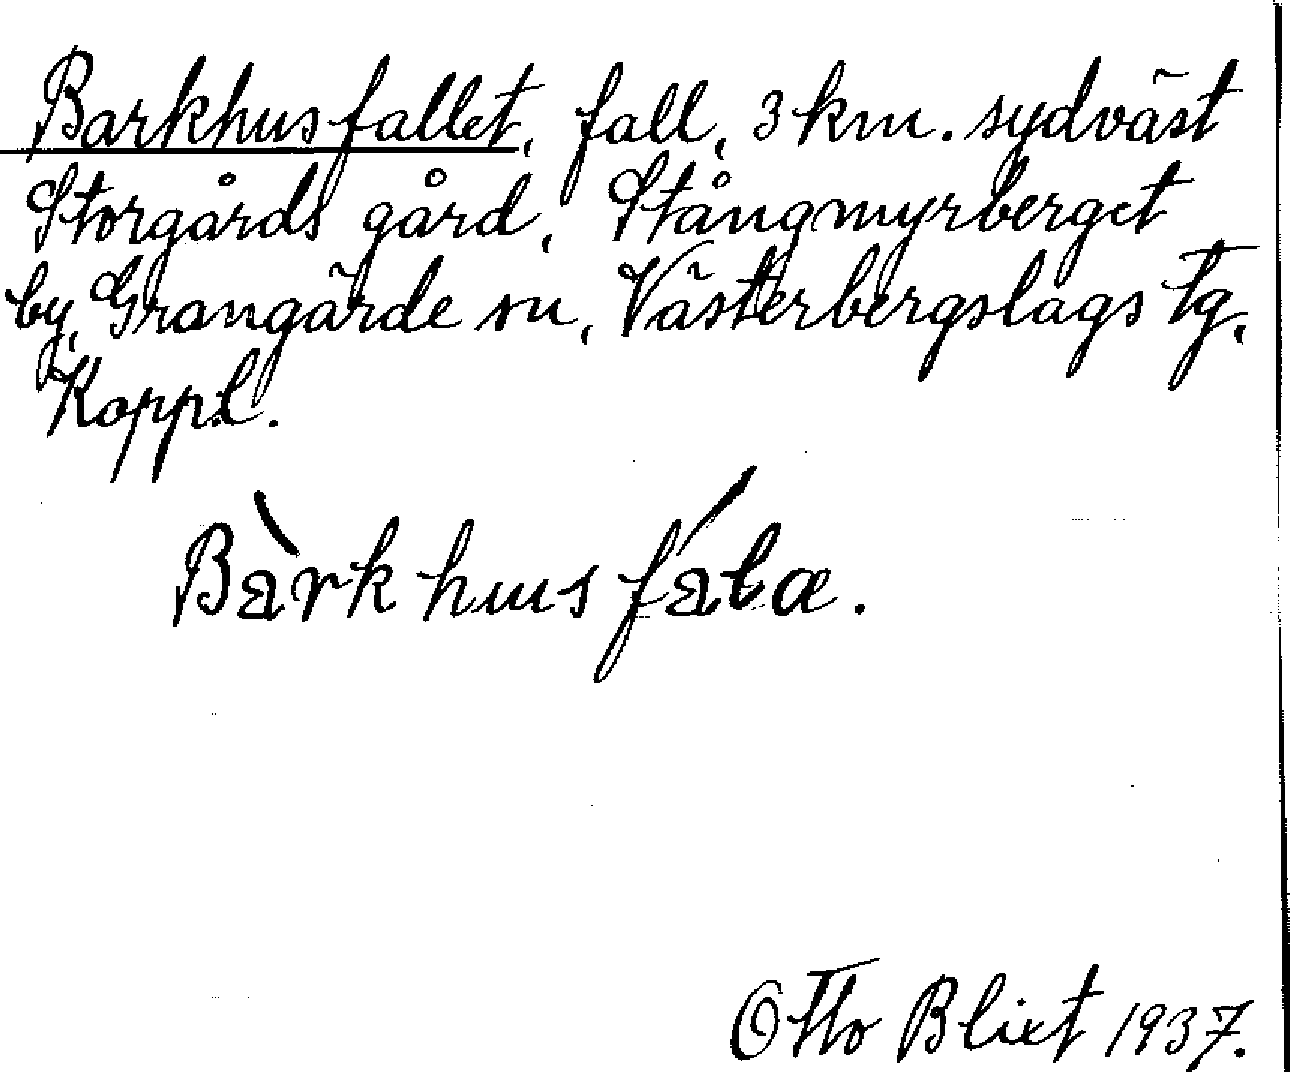 Barkhusfallet, fall, 3 km. sydväst
Storgårds gård, Stångmyrberget
by, Grangärde sn, Västerbergslags tg,
Koppl.
Bàrkhusfálα.
Otto Blixt 1937.